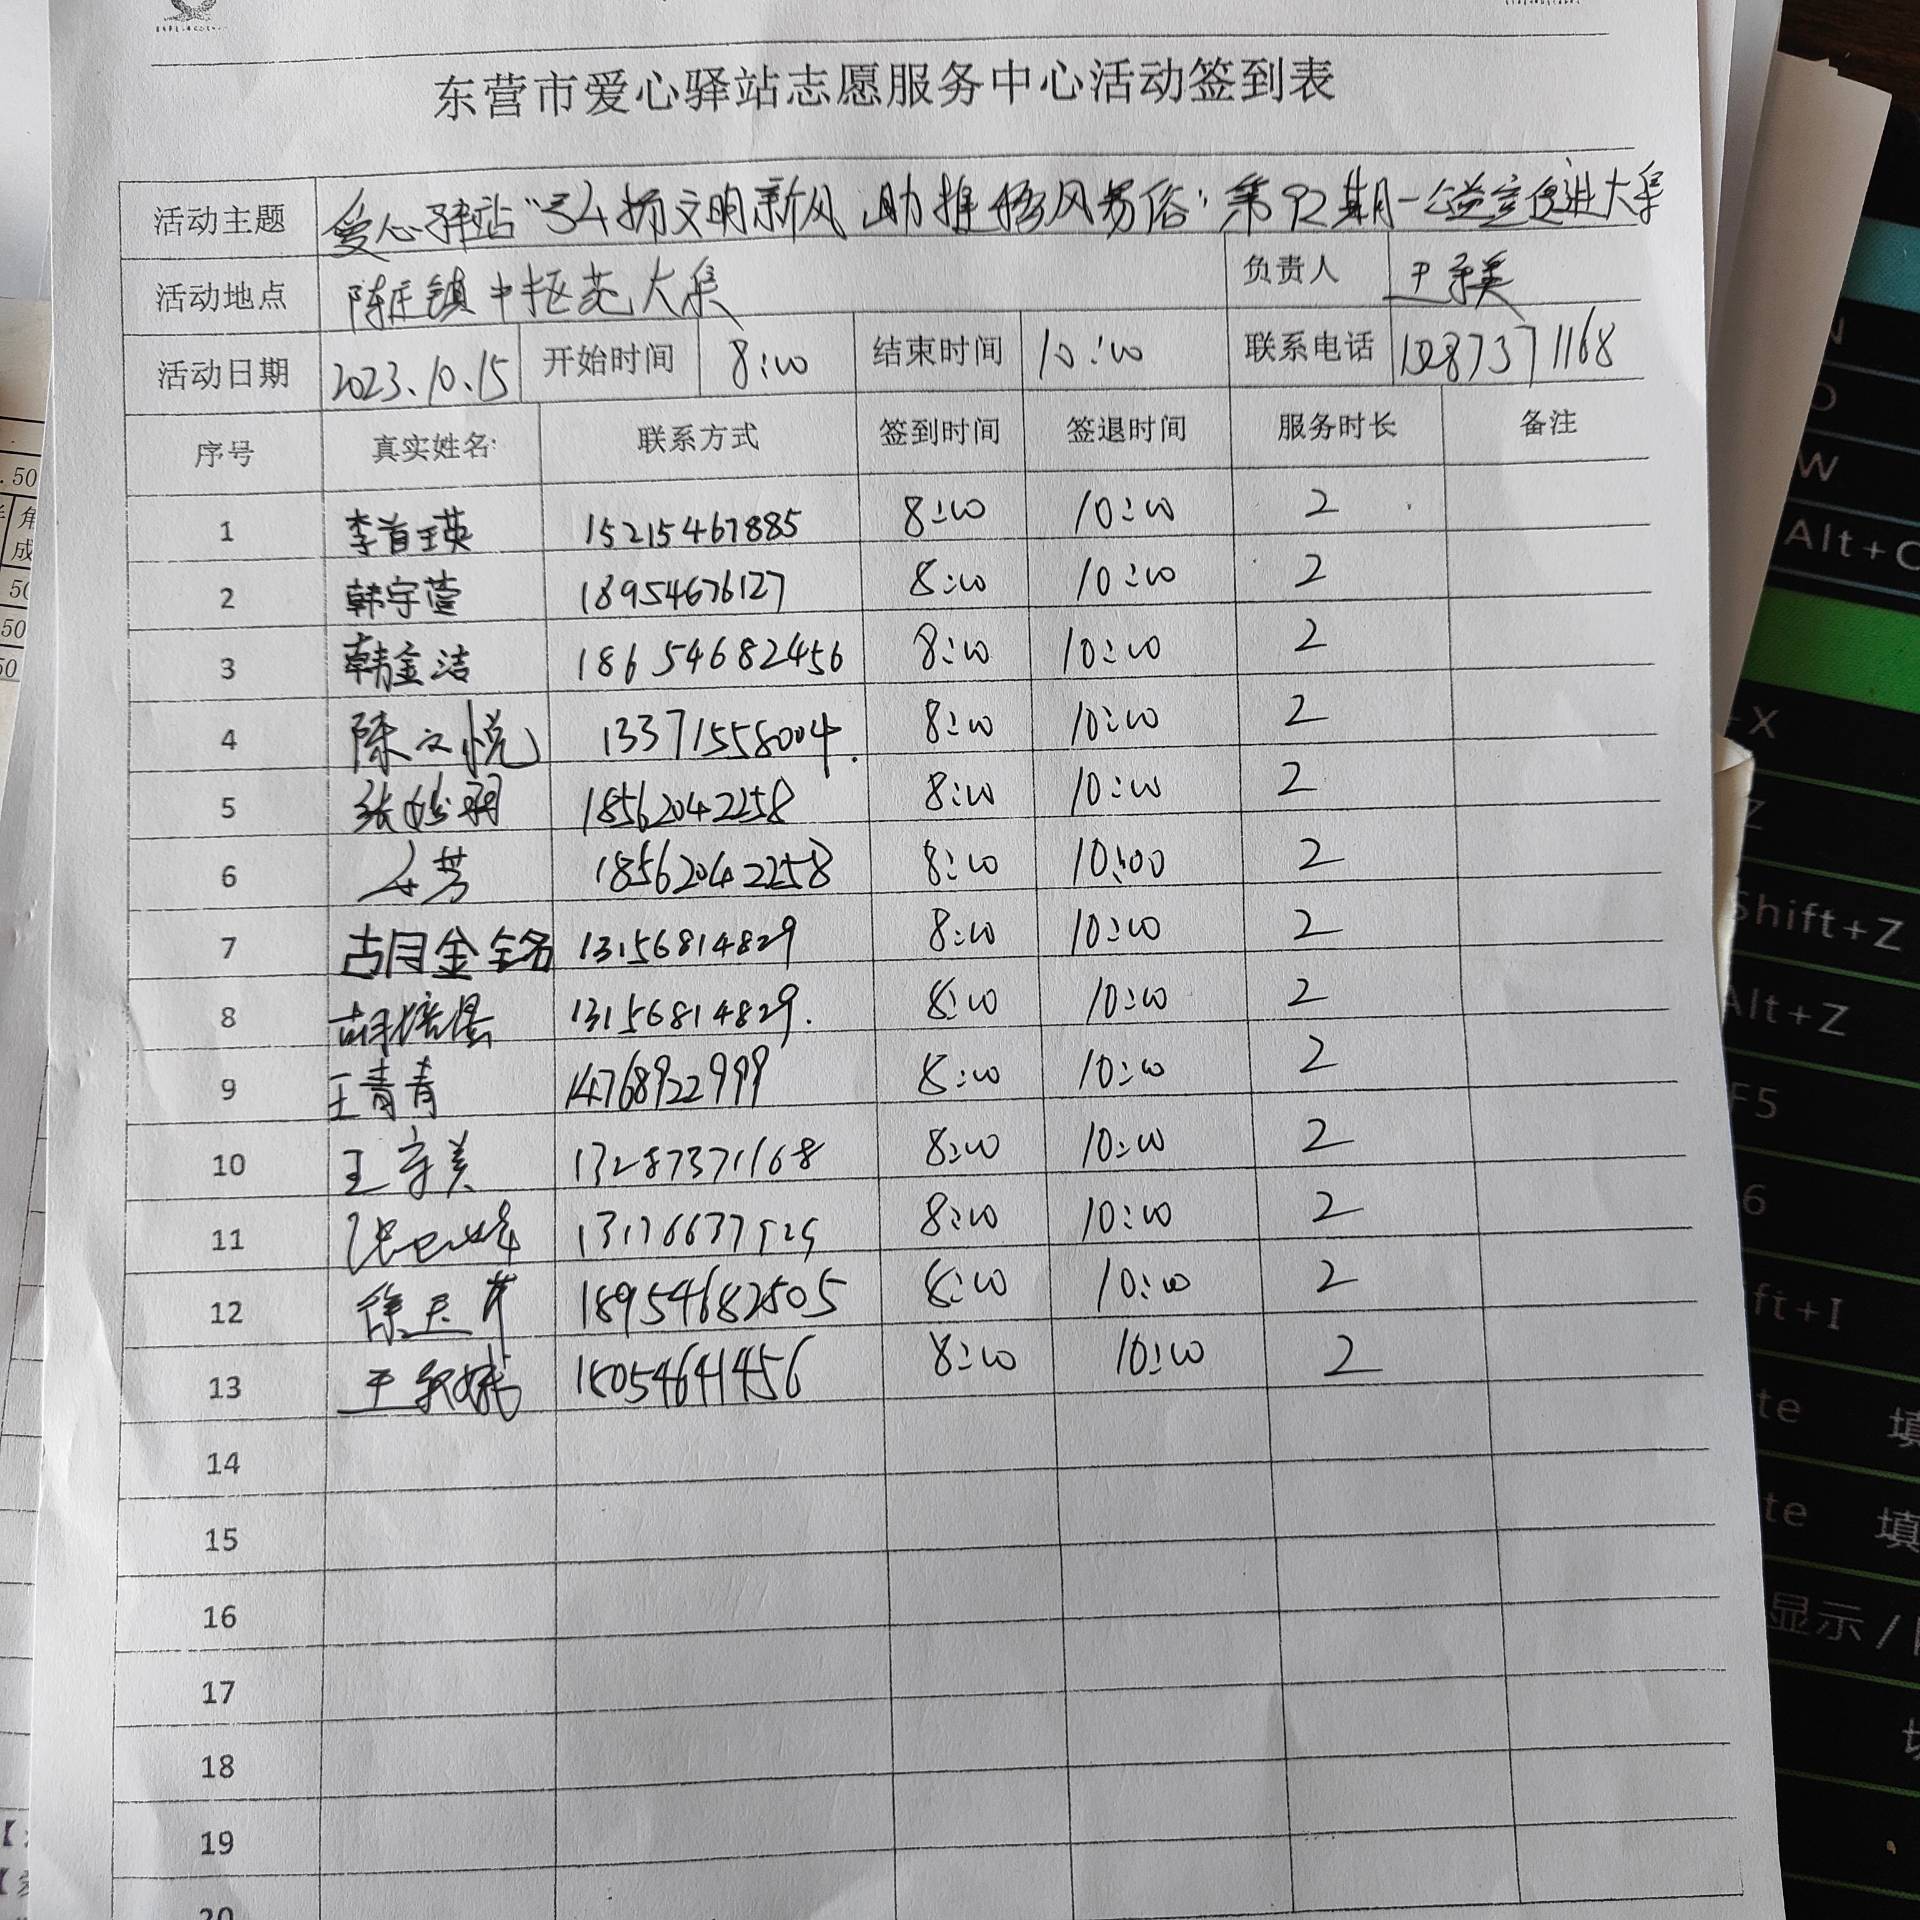 东营市爱心驿站志愿服务中心活动签到表
活动主题 爱心驿站“弘扬文明新风 助推移风易俗”第92期—公益宣传进大集
活动地点 陈庄镇中枢苑大集 负责人 王守美
活动日期 2023.10.15 开始时间 8:00 结束时间 10:00 联系电话 13287371168
序号 真实姓名: 联系方式 签到时间 签退时间 服务时长 备注
1 李首瑛 15215467885 8:00 10:00 2
2 韩宇萱 18954676127 8:00 10:00 2
3 韩金洁 18654682456 8:00 10:00 2
4 陈文悦 13371558004. 8:00 10:00 2
5 张 18562042258 8:00 10:00 2
6 芳 18562042258 8:00 10:00 2
7 胡金铭 13156814829 8:00 10:00 2
8 胡 13156814829. 8:00 10:00 2
9 王青青 14768922999 8:00 10:00 2
10 王守美 13287371168 8:00 10:00 2
11 8:00 10:00 2
12 徐玉芹 18954682505 8:00 10:00 2
13 15054641456 8:00 10:00 2
14
15
16
17
18
19
20
.50
角
成
50
50
50
N
O
W
Alt+C
+X
Z
Shift+Z
Alt+Z
F5
6
ft+I
te 填
te 填
显示/